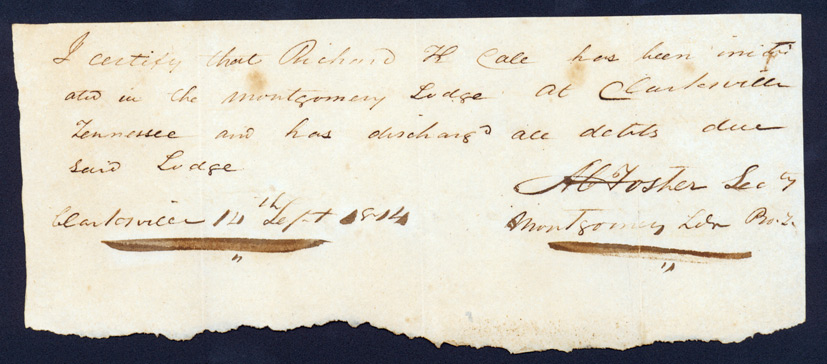 I certify that Richard H Cale has been initi
ated in the Montgomery Lodge At Clarksville
Tennessee and has discharg'd all debts due
said Lodge
A C Foster Secy
Clarksville 14th Sept 1814
Montgomery Ldr